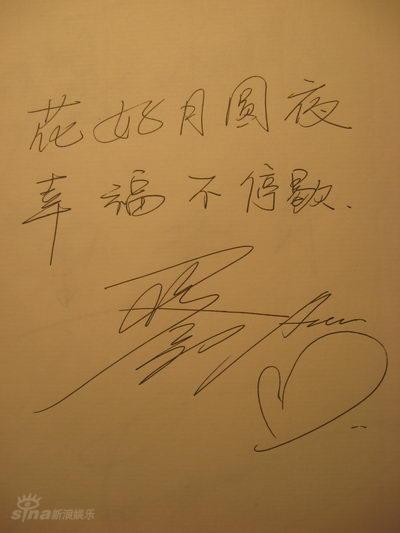 花好月圆夜
幸福不停歇.
sina新浪娱乐